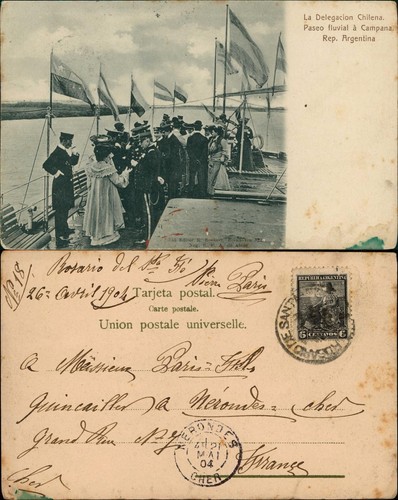 La Delegacion Chilena.
Paseo fluvial à Campana,
Rep. Argentina
No 18
Rosario del Sta Fe
Via Paris
26 Avril 1904
Tarjeta postal.
Carte postale.
Union postale universelle.
REPUBLICA ARGENTINA
5 CENTAVOS 5
DE SANT
a Monsieur Paris-Fils
Quincailler a Nérondes-Cher
Grand Rue No
France
Cher
NERONDES
MAI
04
CHER